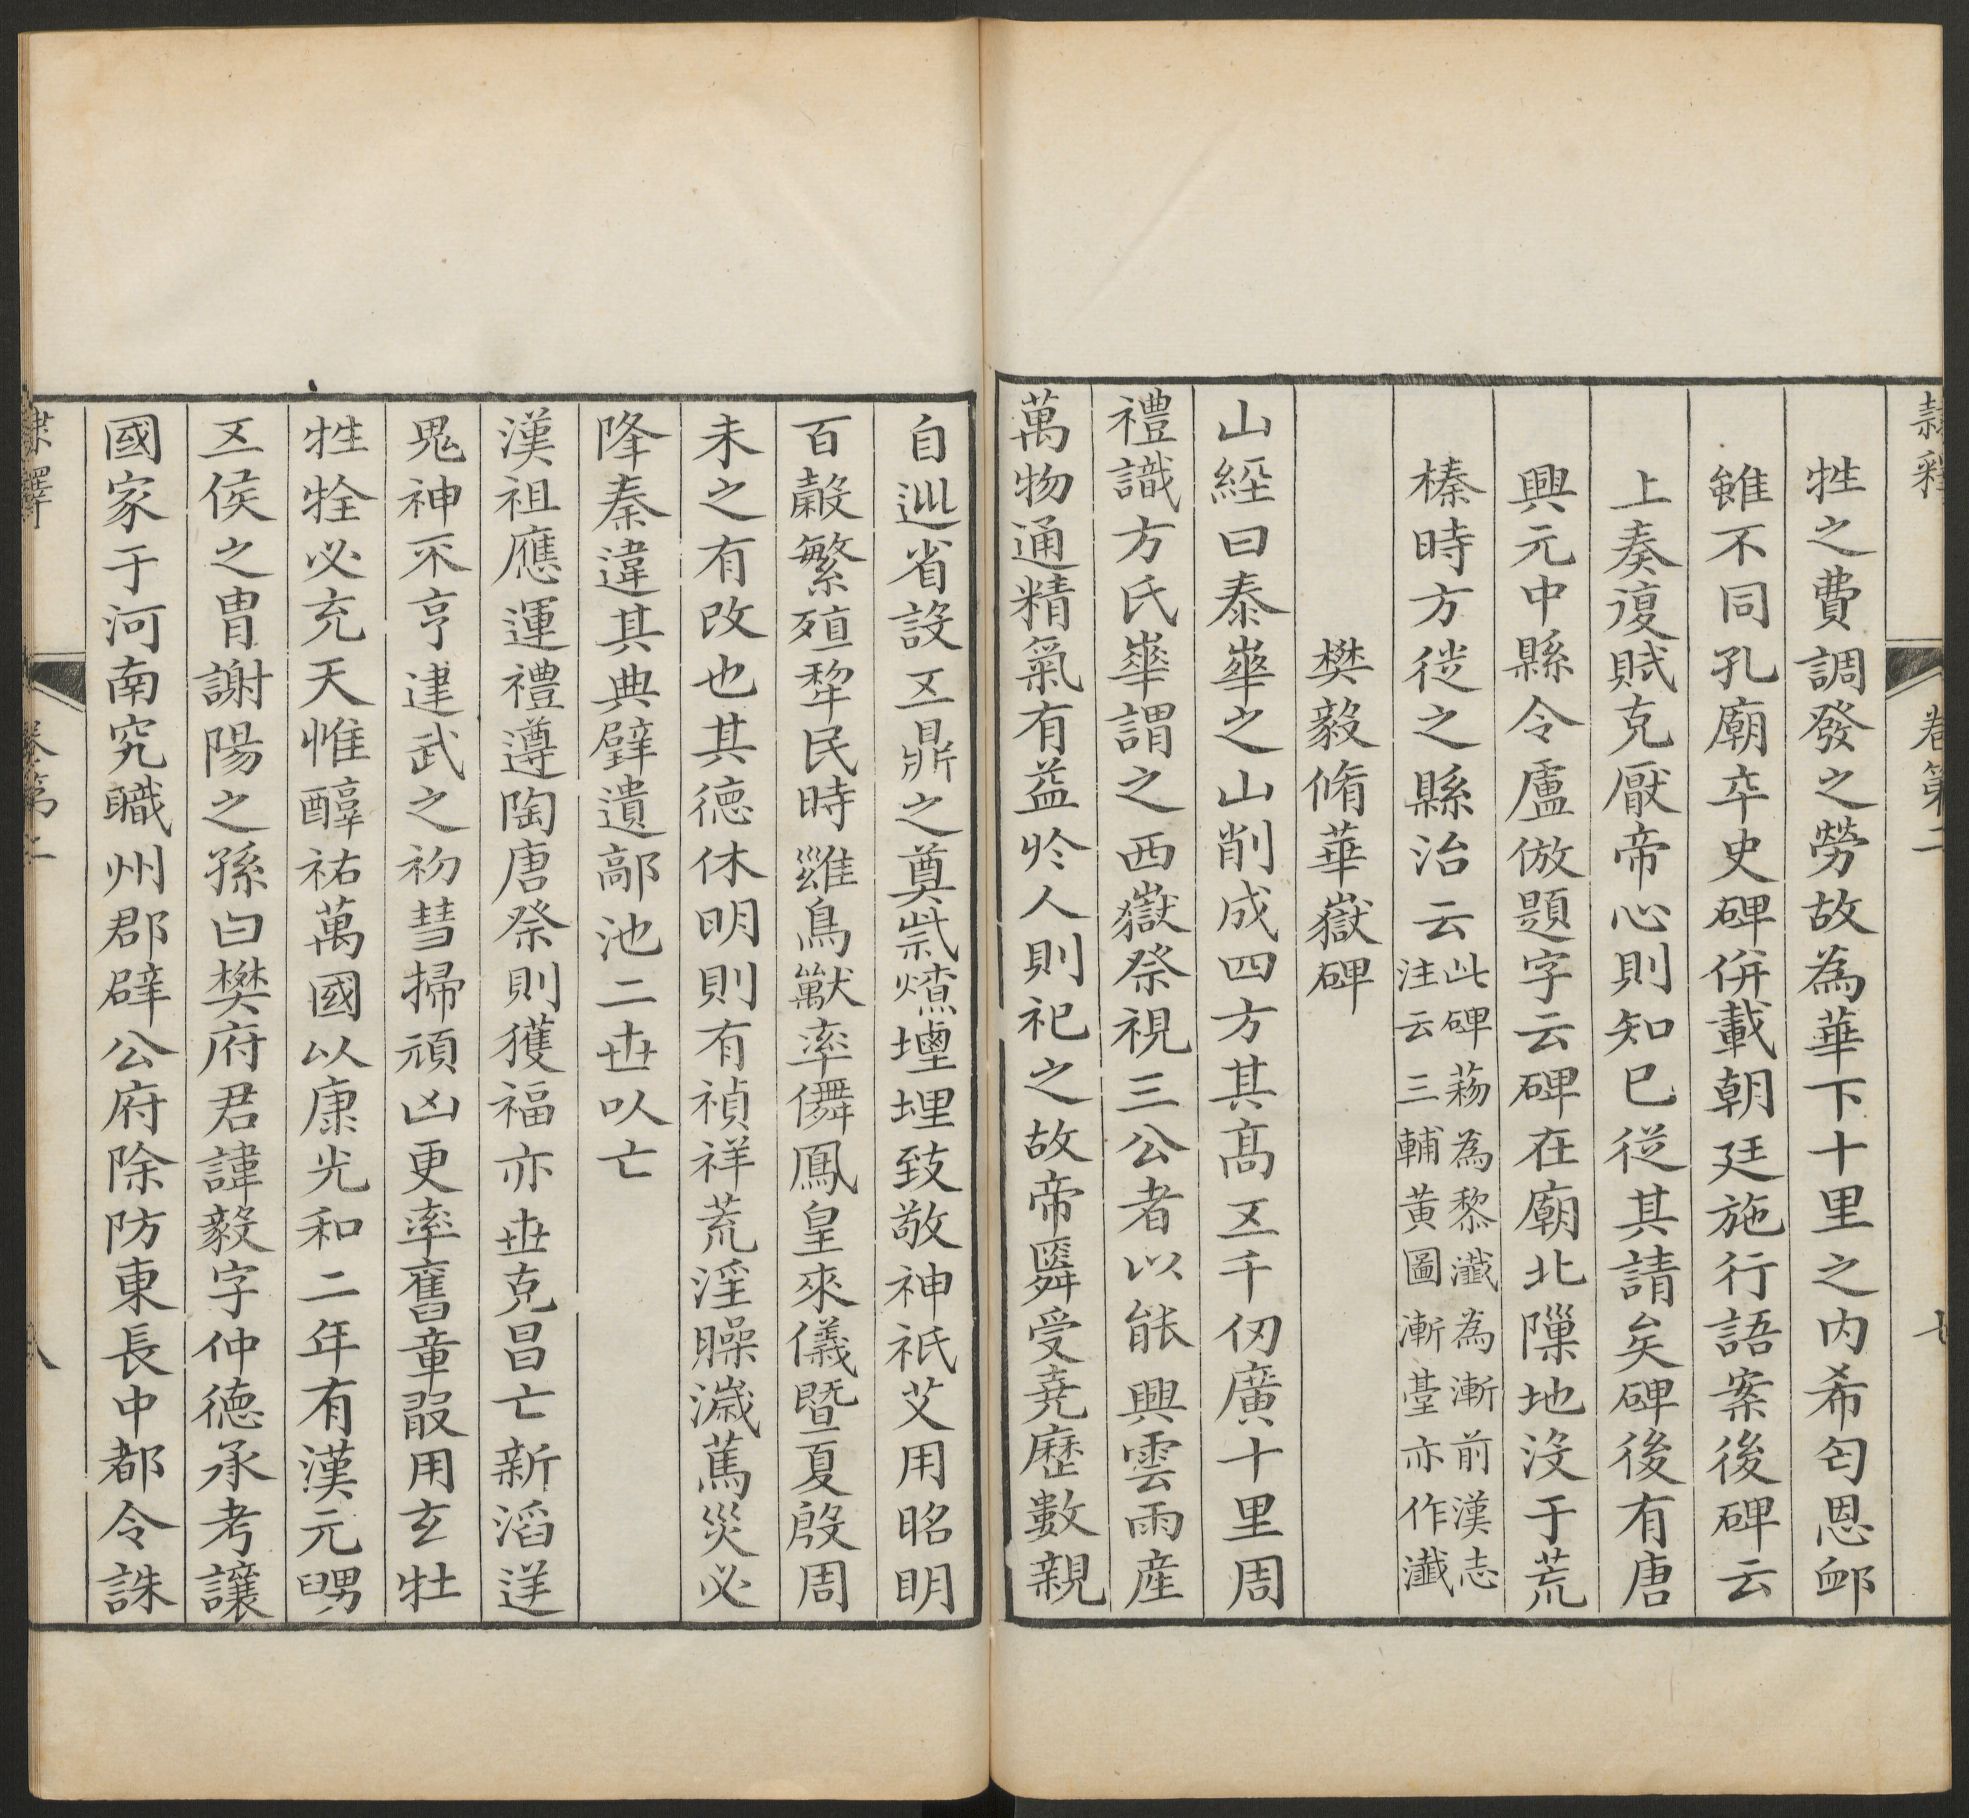 隷釋 卷第二 七
牲之費調發之勞故為華下十里之内希匄恩䘏
雖不同孔廟卒史碑併載朝廷施行語案後碑云
上奏復賦克厭帝心則知已從其請矣碑後有唐
興元中縣令盧倣題字云碑在廟北隟地沒于荒
榛時方徙之縣治云此碑蕛為黎瀸為漸前漢志
注云三輔黃圖漸臺亦作瀸
樊毅脩華嶽碑
山經曰泰崋之山削成四方其高㐅千仞廣十里周
禮識方氏崋謂之西嶽祭視三公者以能興雲雨産
萬物通精氣有益於人則祀之故帝䑞受堯歷數親
自巡省設㐅鼎之奠祡燎壇埋致敬神祇艾用昭明
百穀繁殖犂民時雍鳥獸率儛鳳皇來儀暨夏殷周
未之有改也其德休明則有禎祥荒淫臊濊篤災必
降秦違其典璧遺鄗池二丗以亡
漢祖應運禮遵陶唐祭則獲福亦丗克昌亡新滔逆
鬼神不亨建武之初彗掃頑凶更率舊章敢用玄牡
牲牷必充天惟醇祐萬國以康光和二年有漢元舅
㐅侯之胄謝陽之孫曰樊府君諱毅字仲德承考讓
國家于河南究職州郡辟公府除防東長中都令誅
隷釋 卷第二 八